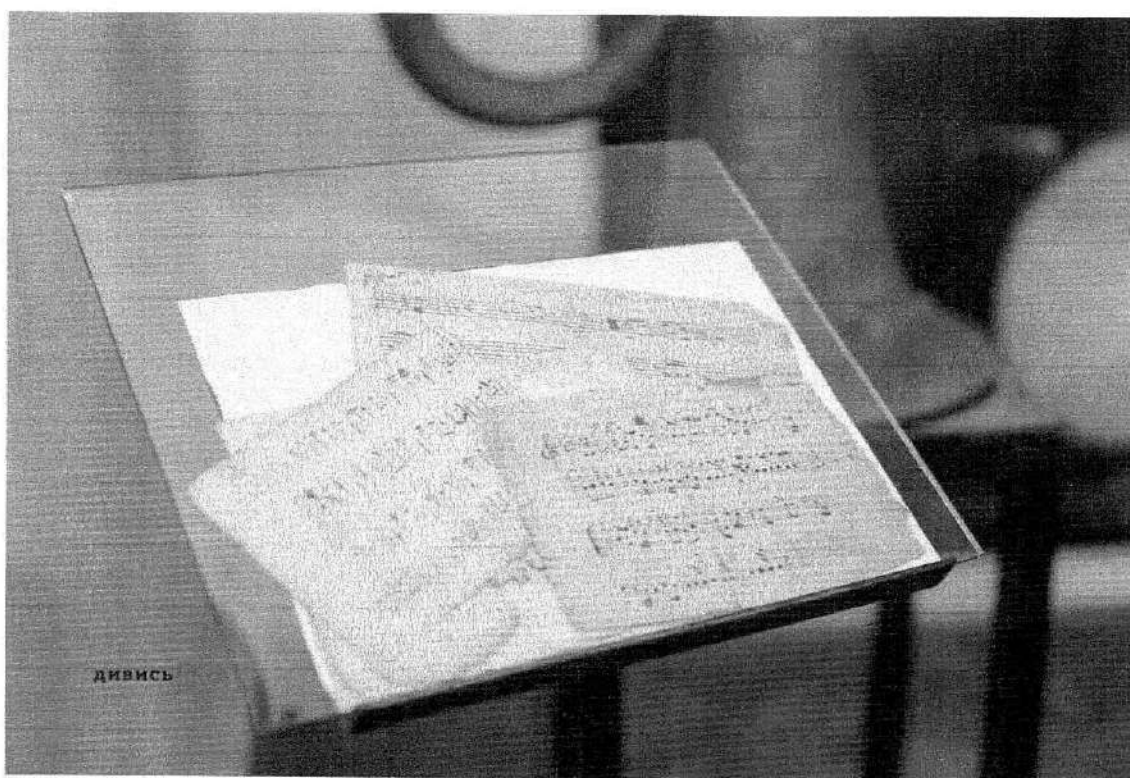 дивись